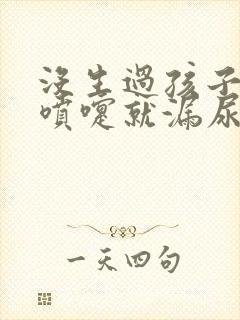 沒生過孩子
噴嚏就漏尿
一天四句